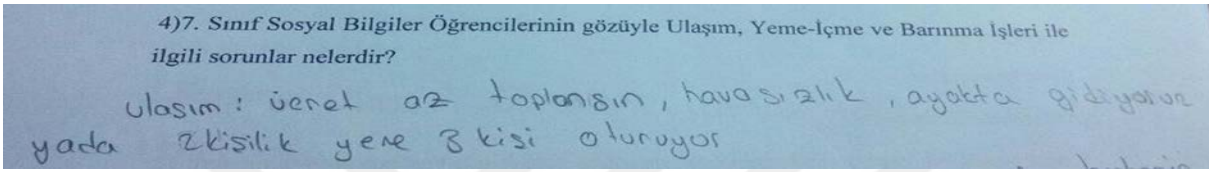 4)7. Sınıf Sosyal Bilgiler Öğrencilerinin gözüyle Ulaşım, Yeme-İçme ve Barınma İşleri ile
ilgili sorunlar nelerdir?
ulaşım : ücret az toplansın, havasızlık, ayakta gidiyoruz
yada 2kişilik yere 3 kişi oturuyor